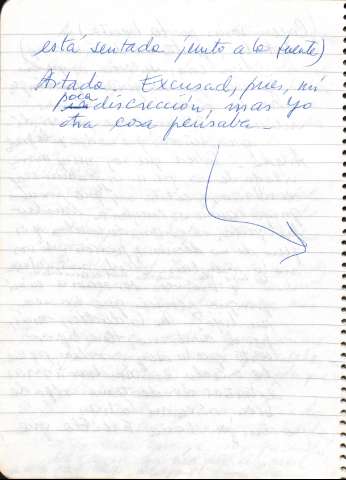 está sentada junto a la fuente)
Artada. Excusad, pues, mi
poca
discreción, mas yo
otra cosa pensaba_